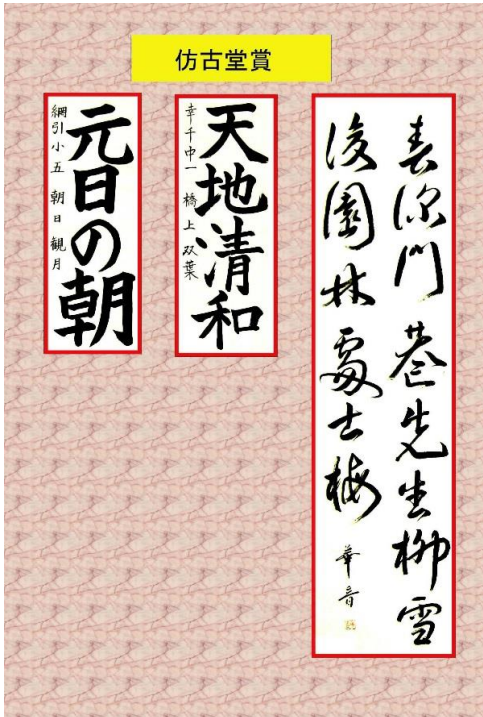 仿古堂賞
春深門巷先生柳雪
後園林處士梅
華音
天地清和
幸千中一 橋上双葉
元日の朝
網引小五 朝日観月